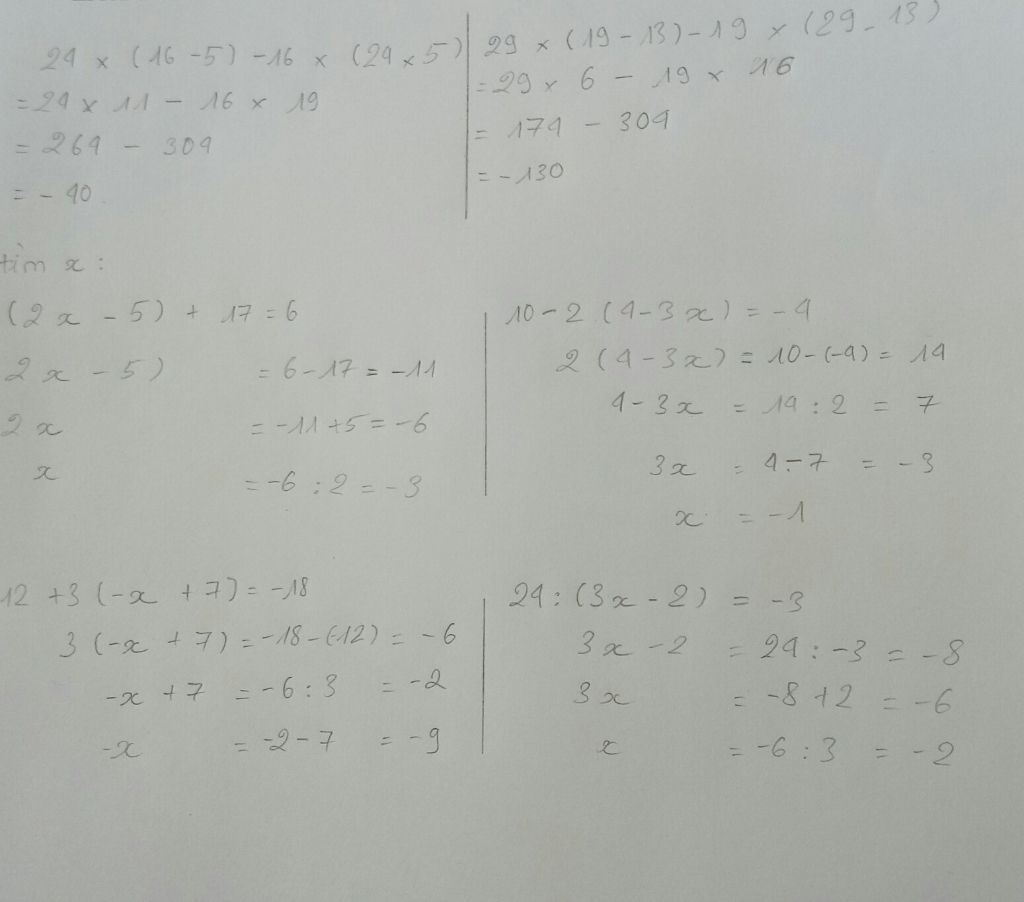 24 × (16 - 5) - 16 × (24 × 5)
= 24 × 11 - 16 × 19
= 264 - 304
= - 40
29 × (19 - 13) - 19 × (29 - 13)
= 29 × 6 - 19 × 16
= 174 - 304
= - 130
tìm x :
(2x - 5) + 17 = 6
2x - 5) = 6 - 17 = -11
2x = -11 + 5 = -6
x = -6 : 2 = -3
10 - 2 (4 - 3x) = -4
2 (4 - 3x) = 10 - (-4) = 14
4 - 3x = 14 : 2 = 7
3x = 4 - 7 = -3
x = -1
12 + 3 (-x + 7) = -18
3 (-x + 7) = -18 - (-12) = -6
-x + 7 = -6 : 3 = -2
-x = -2 - 7 = -9
24 : (3x - 2) = -3
3x - 2 = 24 : -3 = -8
3x = -8 + 2 = -6
x = -6 : 3 = -2